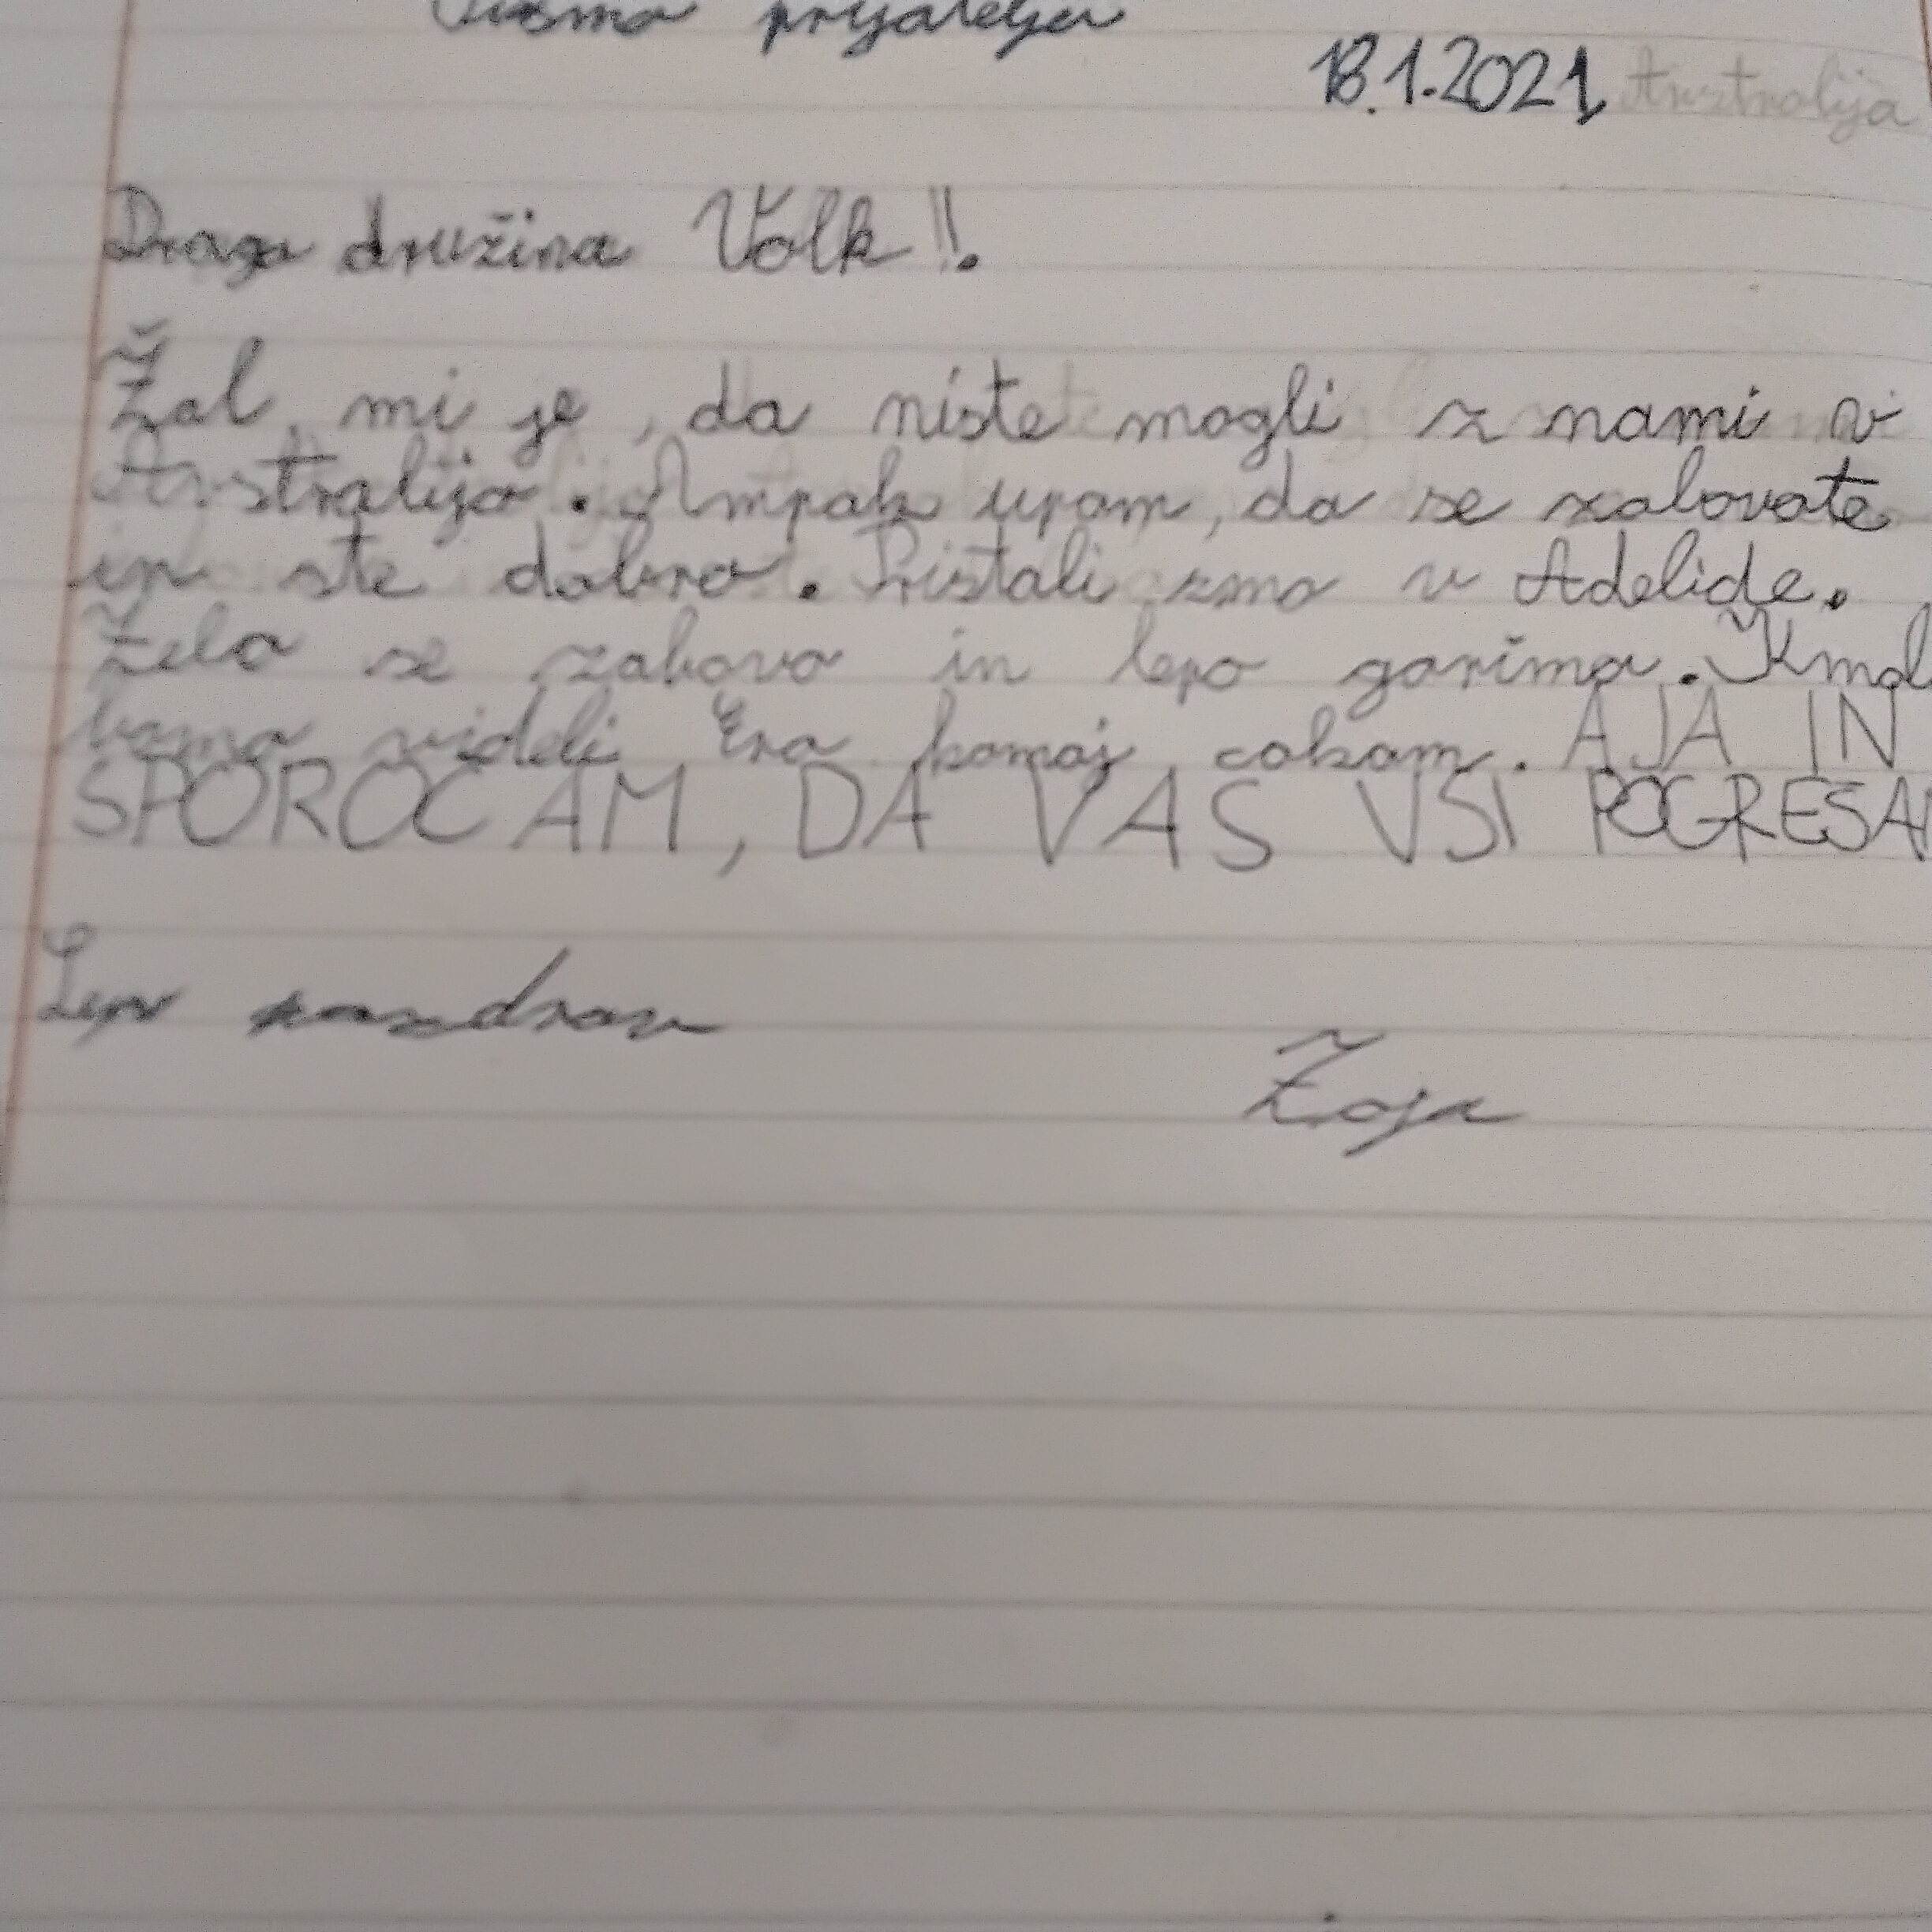 Pismo prijatelju
18.1.2021 Avstralija
Draga družina Volk!!
Žal mi je, da niste mogli z nami v
Avstralijo. Ampak upam, da se zabovate
in ste dobro. Pristali smo v Adelide.
Želo se zabavo in lepo garimo.
videli komaj cakam. AJA IN
SPOROČAM, DA VAS VSI
Lep pozdrav
Zoja